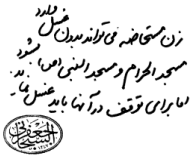 زن مستحاضه می‌تواند بدون غسل وارد
مسجد الحرام و مسجد النبی (ص) شود
اما برای توقف در آنها باید غسل نماید.